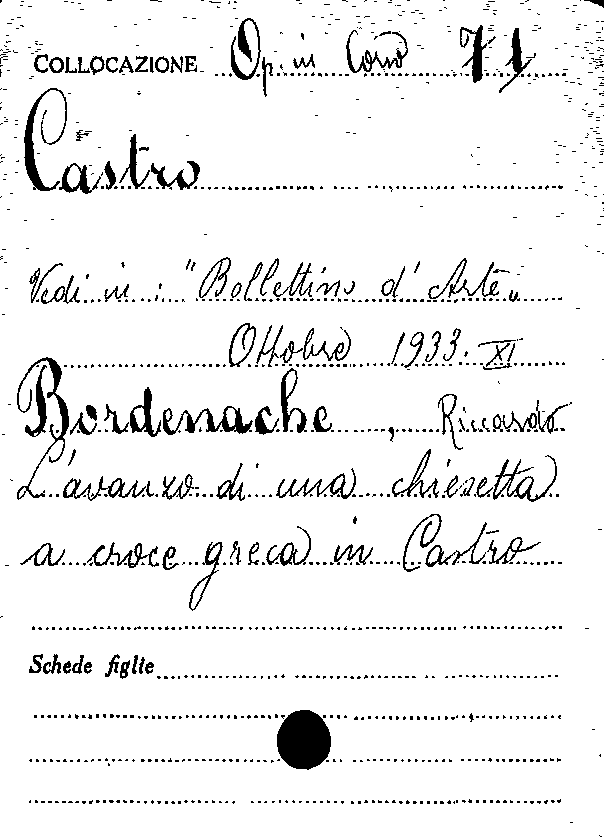 COLLOCAZIONE Op. in Corso 71
Castro
Vedi in : "Bollettino d' Arte„
Ottobre 1933. XI
Bordenache, Riccardo
L'avanzo di una chiesetta
a croce greca in Castro
Schede figlie